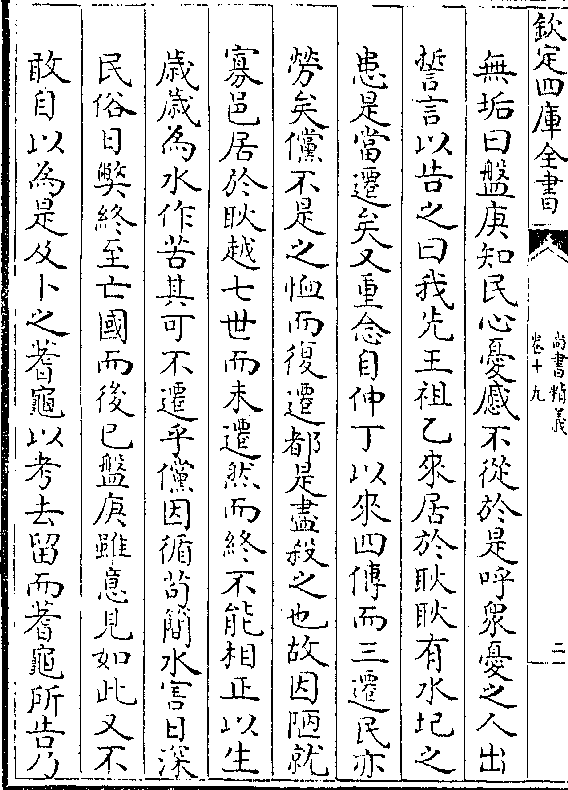 欽定四庫全書
尚書精義
卷十九
二
無垢曰盤庚知民心憂慼不從於是呼衆憂之人出
誓言以告之曰我先王祖乙來居於耿耿有水圮之
患是當遷矣又重念自仲丁以來四傳而三遷民亦
勞矣儻不是之恤而復遷都是盡殺之也故因陋就
寡邑居於耿越七世而未遷然而終不能相正以生
歲歲為水作苦其可不遷乎儻因循茍簡水害日深
民俗日弊終至亡國而後已盤庚雖意見如此又不
敢自以為是及卜之蓍龜以考去留而蓍龜所告乃